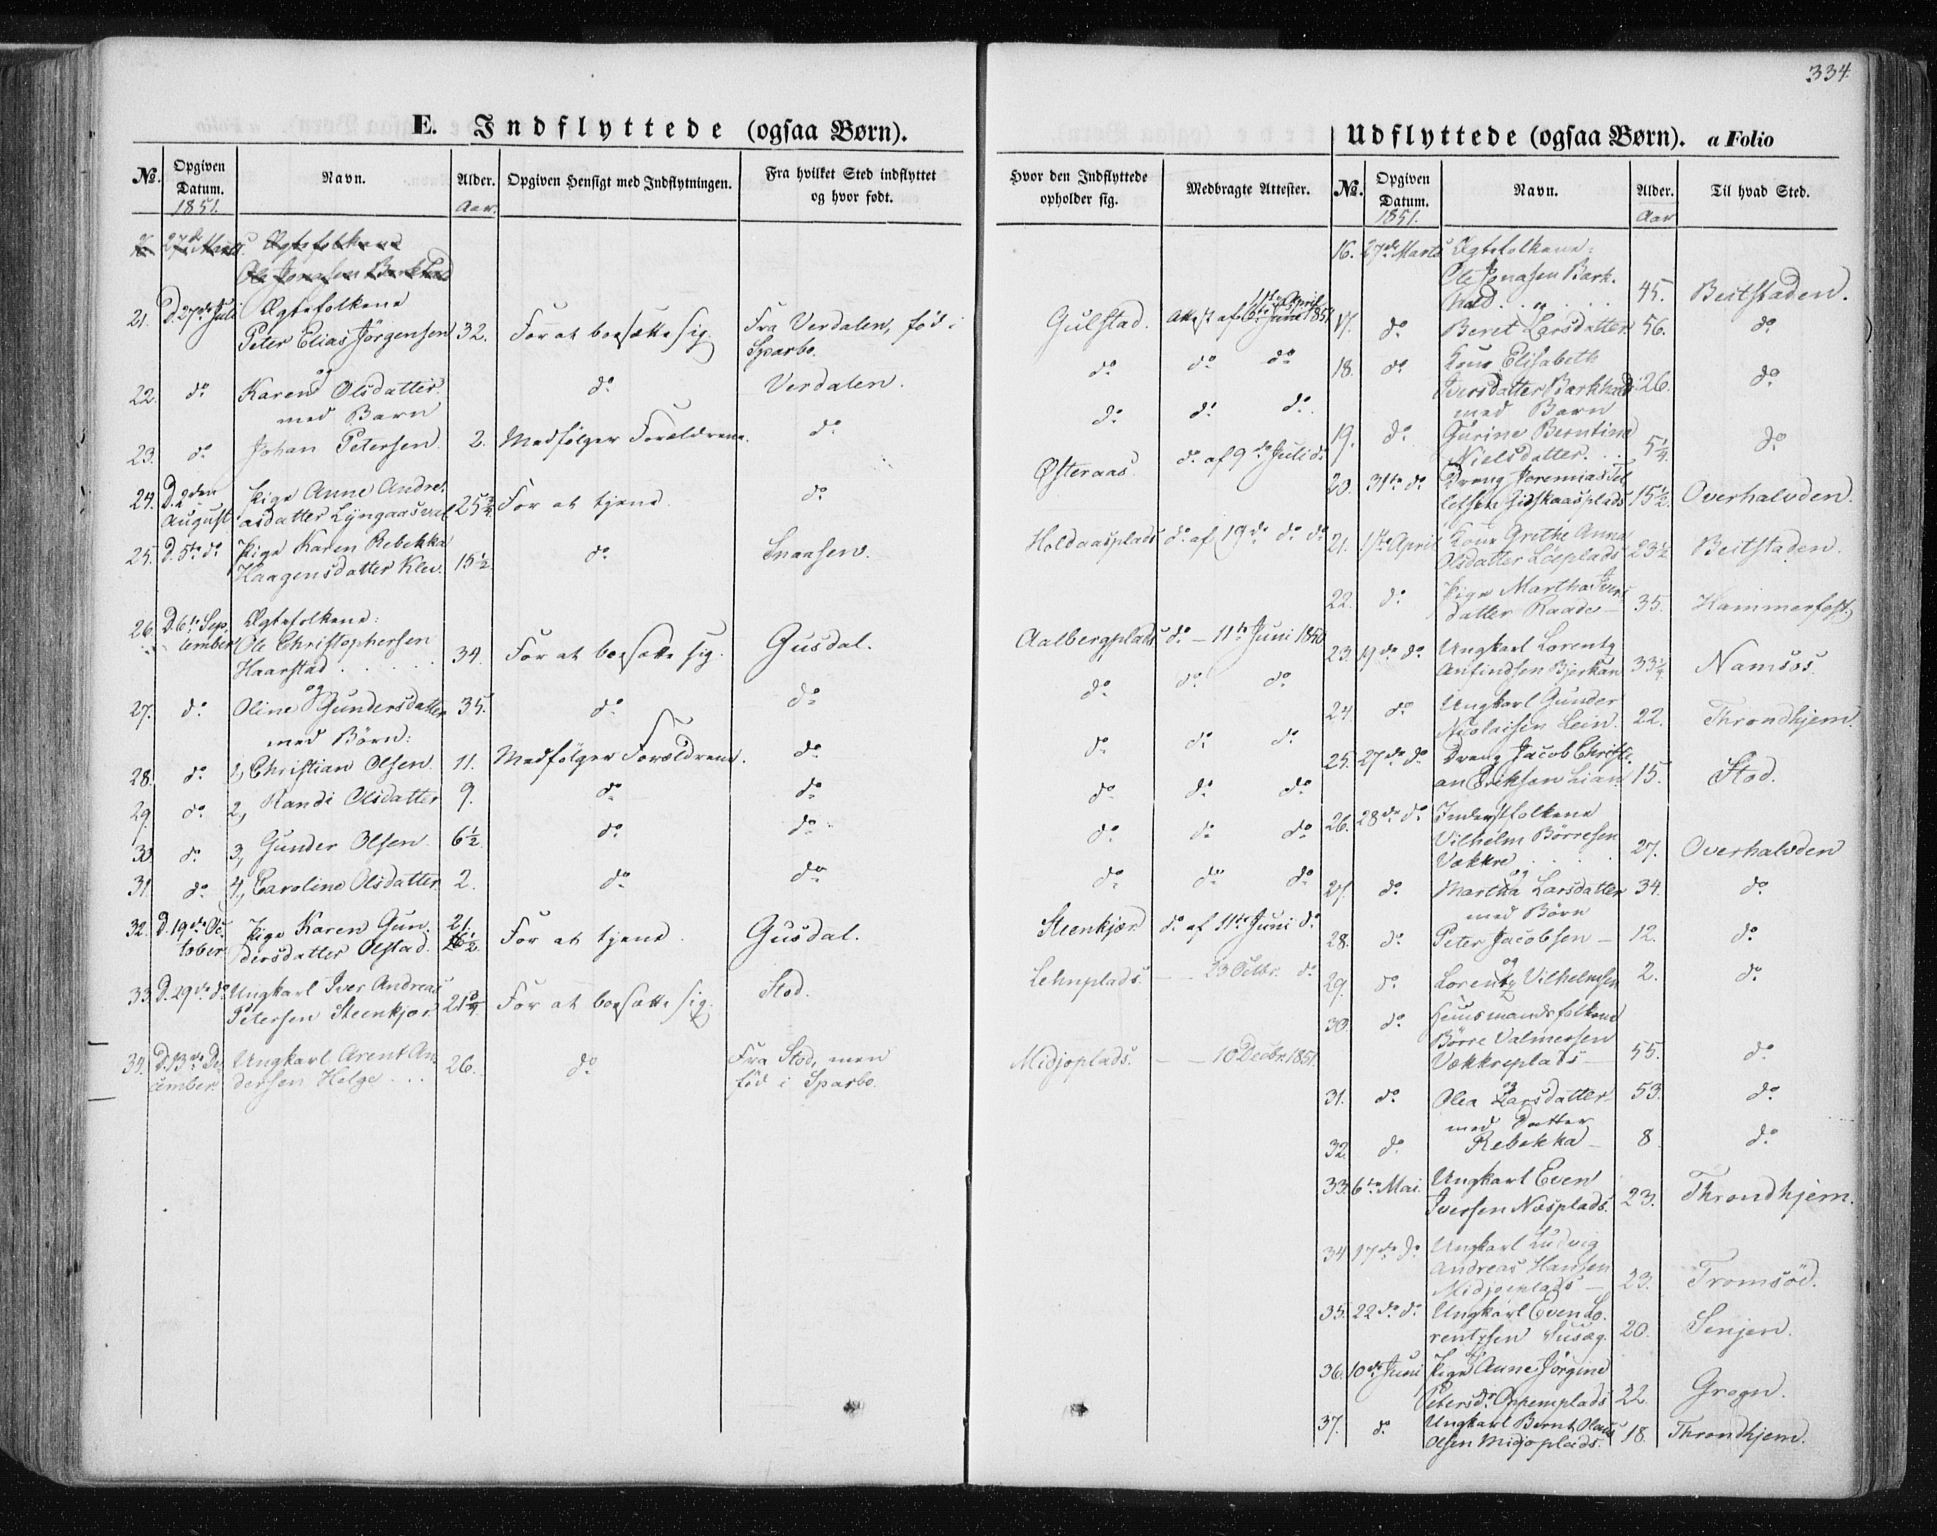 334.
E. Indflyttede (ogsaa Børn).
No. Opgiven Datum. Navn. Alder. Opgiven Hensigt med Indflytningen. Fra hvilket Sted indflyttet og hvor født.
1851. Aar.
27de Marts Ægtefolkene
Ole Jonasen Barkhald
21. D. 27de Juli Ægtefolkene
Peter Elias Jörgensen 32. For at bosætte sig Fra Verdalen, fød i
og Sparbo.
22. do Karen Olsdatter do Verdalen.
med Barn
23. do Johan Petersen 2. Medfölger Forældrene. do
24. D. 2den Pige Anne Andre-
August asdatter Lyngaasvald 25 3/4 For at tjene. do
25. D. 5te do Pige Karen Rebekka
Haagensdatter Klev. 15 1/2 do Snaasen.
26. D. 6te Sep- Ægtefolkene:
tember Ole Christophersen
Haarstad 34. For at bosætte sig. Gusdal.
og
27. do Oline Gundersdatter 35. do do
med Börn:
28. do 1, Christian Olsen. 11. Medfölger Forældrene. do
29. do 2, Randi Olsdatter 9. do do
30 do 3, Gunder Olsen. 6 1/2 do do
31 do 4, Caroline Olsdatter 2. do do
32. D. 19de Oc- Pige Karen Gun- 21.
tober dersdatter Olstad. 26 1/2 For at tjene. Gusdal.
33. D. 29de do Ungkarl Iver Andreas
Petersen Steenkjær 21 3/4 For at bosætte sig. Stod.
34. D. 13de De- Ungkarl Arent An- Fra Stod, men
cember. dersen Helge 26. do fød i Sparbo.
Hvor den Indflyttede opholder sig. Medbragte Attester.
Gulstad. Attest af 11te April 6te Juni 1851
do do do
do do do
Østeraas. do af 9de Juli do
Holdaasplads do af 19de do do
Aalbergplads do – 11te Juni 1850
do do do
do do do
do do do
do do do
do do do
Steenkjær do af 11te Juni do
Lehnplads. – – 23 Octbr. do
Midjoplads. – – 10 Decbr. 1851.
Udflyttede (ogsaa Børn). a Folio
No. Opgiven Datum. Navn. Alder. Til hvad Sted.
1851. Aar
16. 27de Marts Ægtefolkene:
Ole Jonasen Bark-
hald 45. Beitstaden.
17. do Beret Larsdatter 56. do
18. do Kone Elisabeth
Iversdatter Barkhald 26. do
med Barn
19. do Gurine Berntine
Nielsdatter. 5 1/4 do
20. 31te do Dreng Jeremias Tol-
lefsen Gidskaasplads 15 1/2. Overhalvden.
21. 1ste April Kone Grethe Anna
Olsdatter Löeplads 23 1/2 Beitstaden.
22. do Pige Martha Ivers-
datter Raade – 35. Hammerfest
23. 19de do Ungkarl Lorentz
Anfindsen Bjerkan 33 1/4 Namsos.
24. do Ungkarl Gunder
Nicolaisen Lein. 22. Throndhjem.
25. 27de do Dreng Jacob Christi-
an Eriksen Lian. 15. Stod.
26. 28de do Inderstfolkene
Vilhelm Börresen
Vækkre 27. Overhalvden
og
27. do Martha Larsdatter 34. do
med Börn
28. do Peter Jacobsen – 12. do
og
29. do Lorentz Vilhelmsen 2. do
30. do Huusmandsfolkene
Börre Valmersen
Vækkreplads – 55. do
og
31. do Olea Larsdatter 53. do
med Datter
32. do Rebekka – 8 do
33. 6te Mai. Ungkarl Even
Iversen Næsplads. 23. Throndhjem.
34 17de do Ungkarl Ludvig
Andreas Hansen
Midjoplads – 23. Tromsöd.
35. 22de do Ungkarl Even Lo-
rentzen Susæg. 20. Senjen.
36. 10de Juni Pige Anne Jörgine
Petersdr Oppemplads 22 Grogn.
37. do Ungkarl Bernt Olaus
Olsen Midjoplads. 18. Throndhjem.